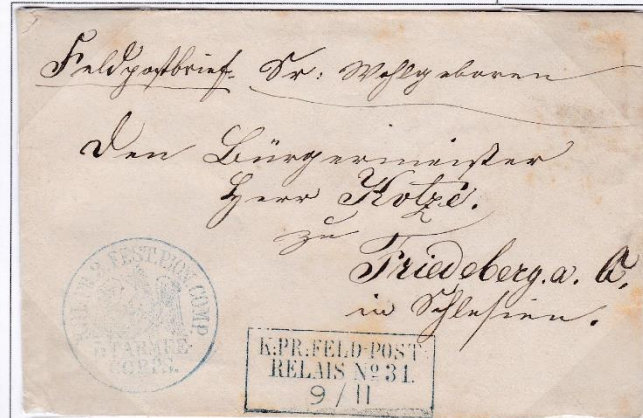 Feldpostbrief. Sr: Wohlgeboren
Den Bürgermeister
Herr Kotzé.
zu
Friedeberg. a. Q.
in Schlesien.
2. FEST. PION. COMP.
ARMEE
CORPS.
K:PR:FELD-POST
RELAIS No 31.
9/11